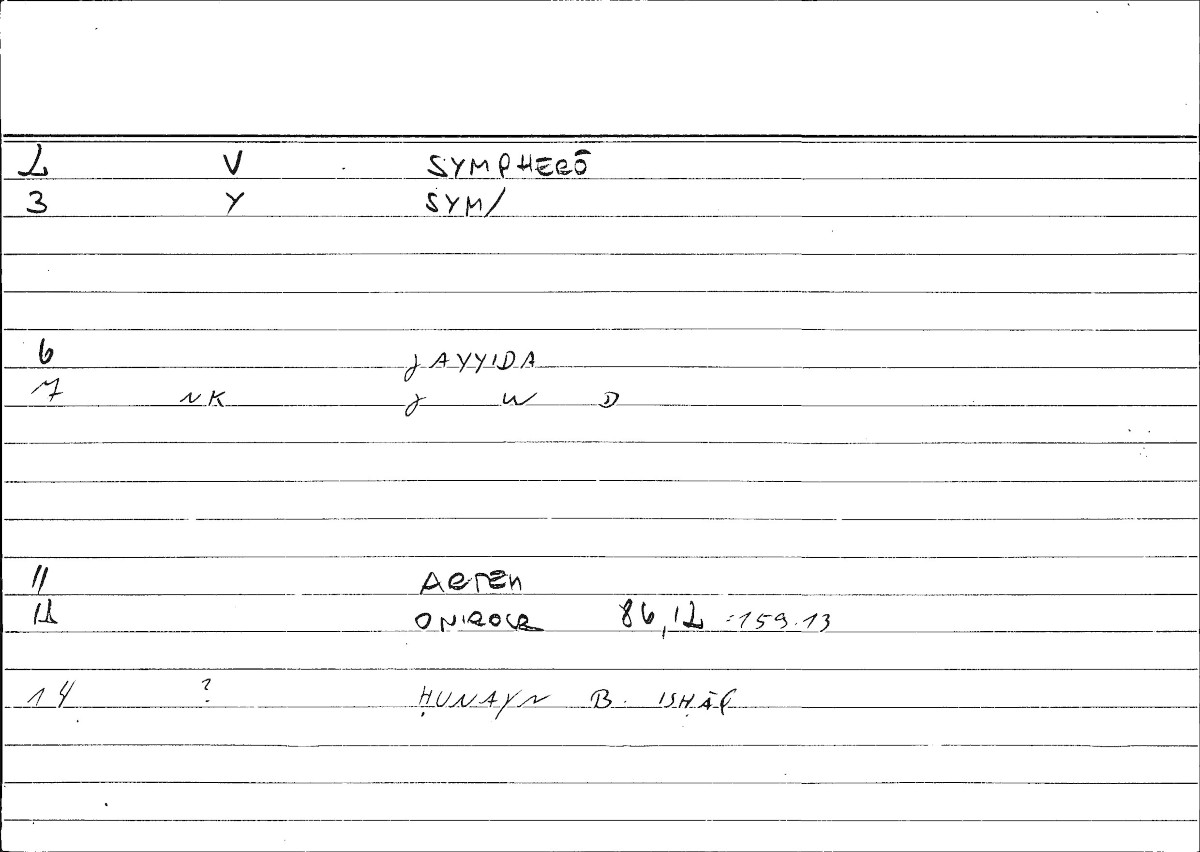 2 V SYMPHERŌ
3 Y SYM/
6 JAYYIDA
7 NK J W D
11 ARTEM
12 ONIROCR 86,12 =159.13
14 ? ḤUNAYN B. ISḤĀQ